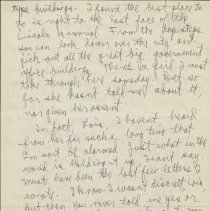 type buildings. I found the best place to
go is right to the East face of the
Lincoln Memorial. From the top steps
you can look down over the city and
pick out all the great big government
office buildings. There's a girl I must
take through here someday. But so
far she hasn't told me about it,
nor given her assent.
In fact, Lois, I haven't heard
from her for such a long time that
I'm sort of alarmed just what in the
world is holding it up. I can't say.
must have been the last few letters I
wrote. I know I wasn't discreet Lois
but then you never told me yes or